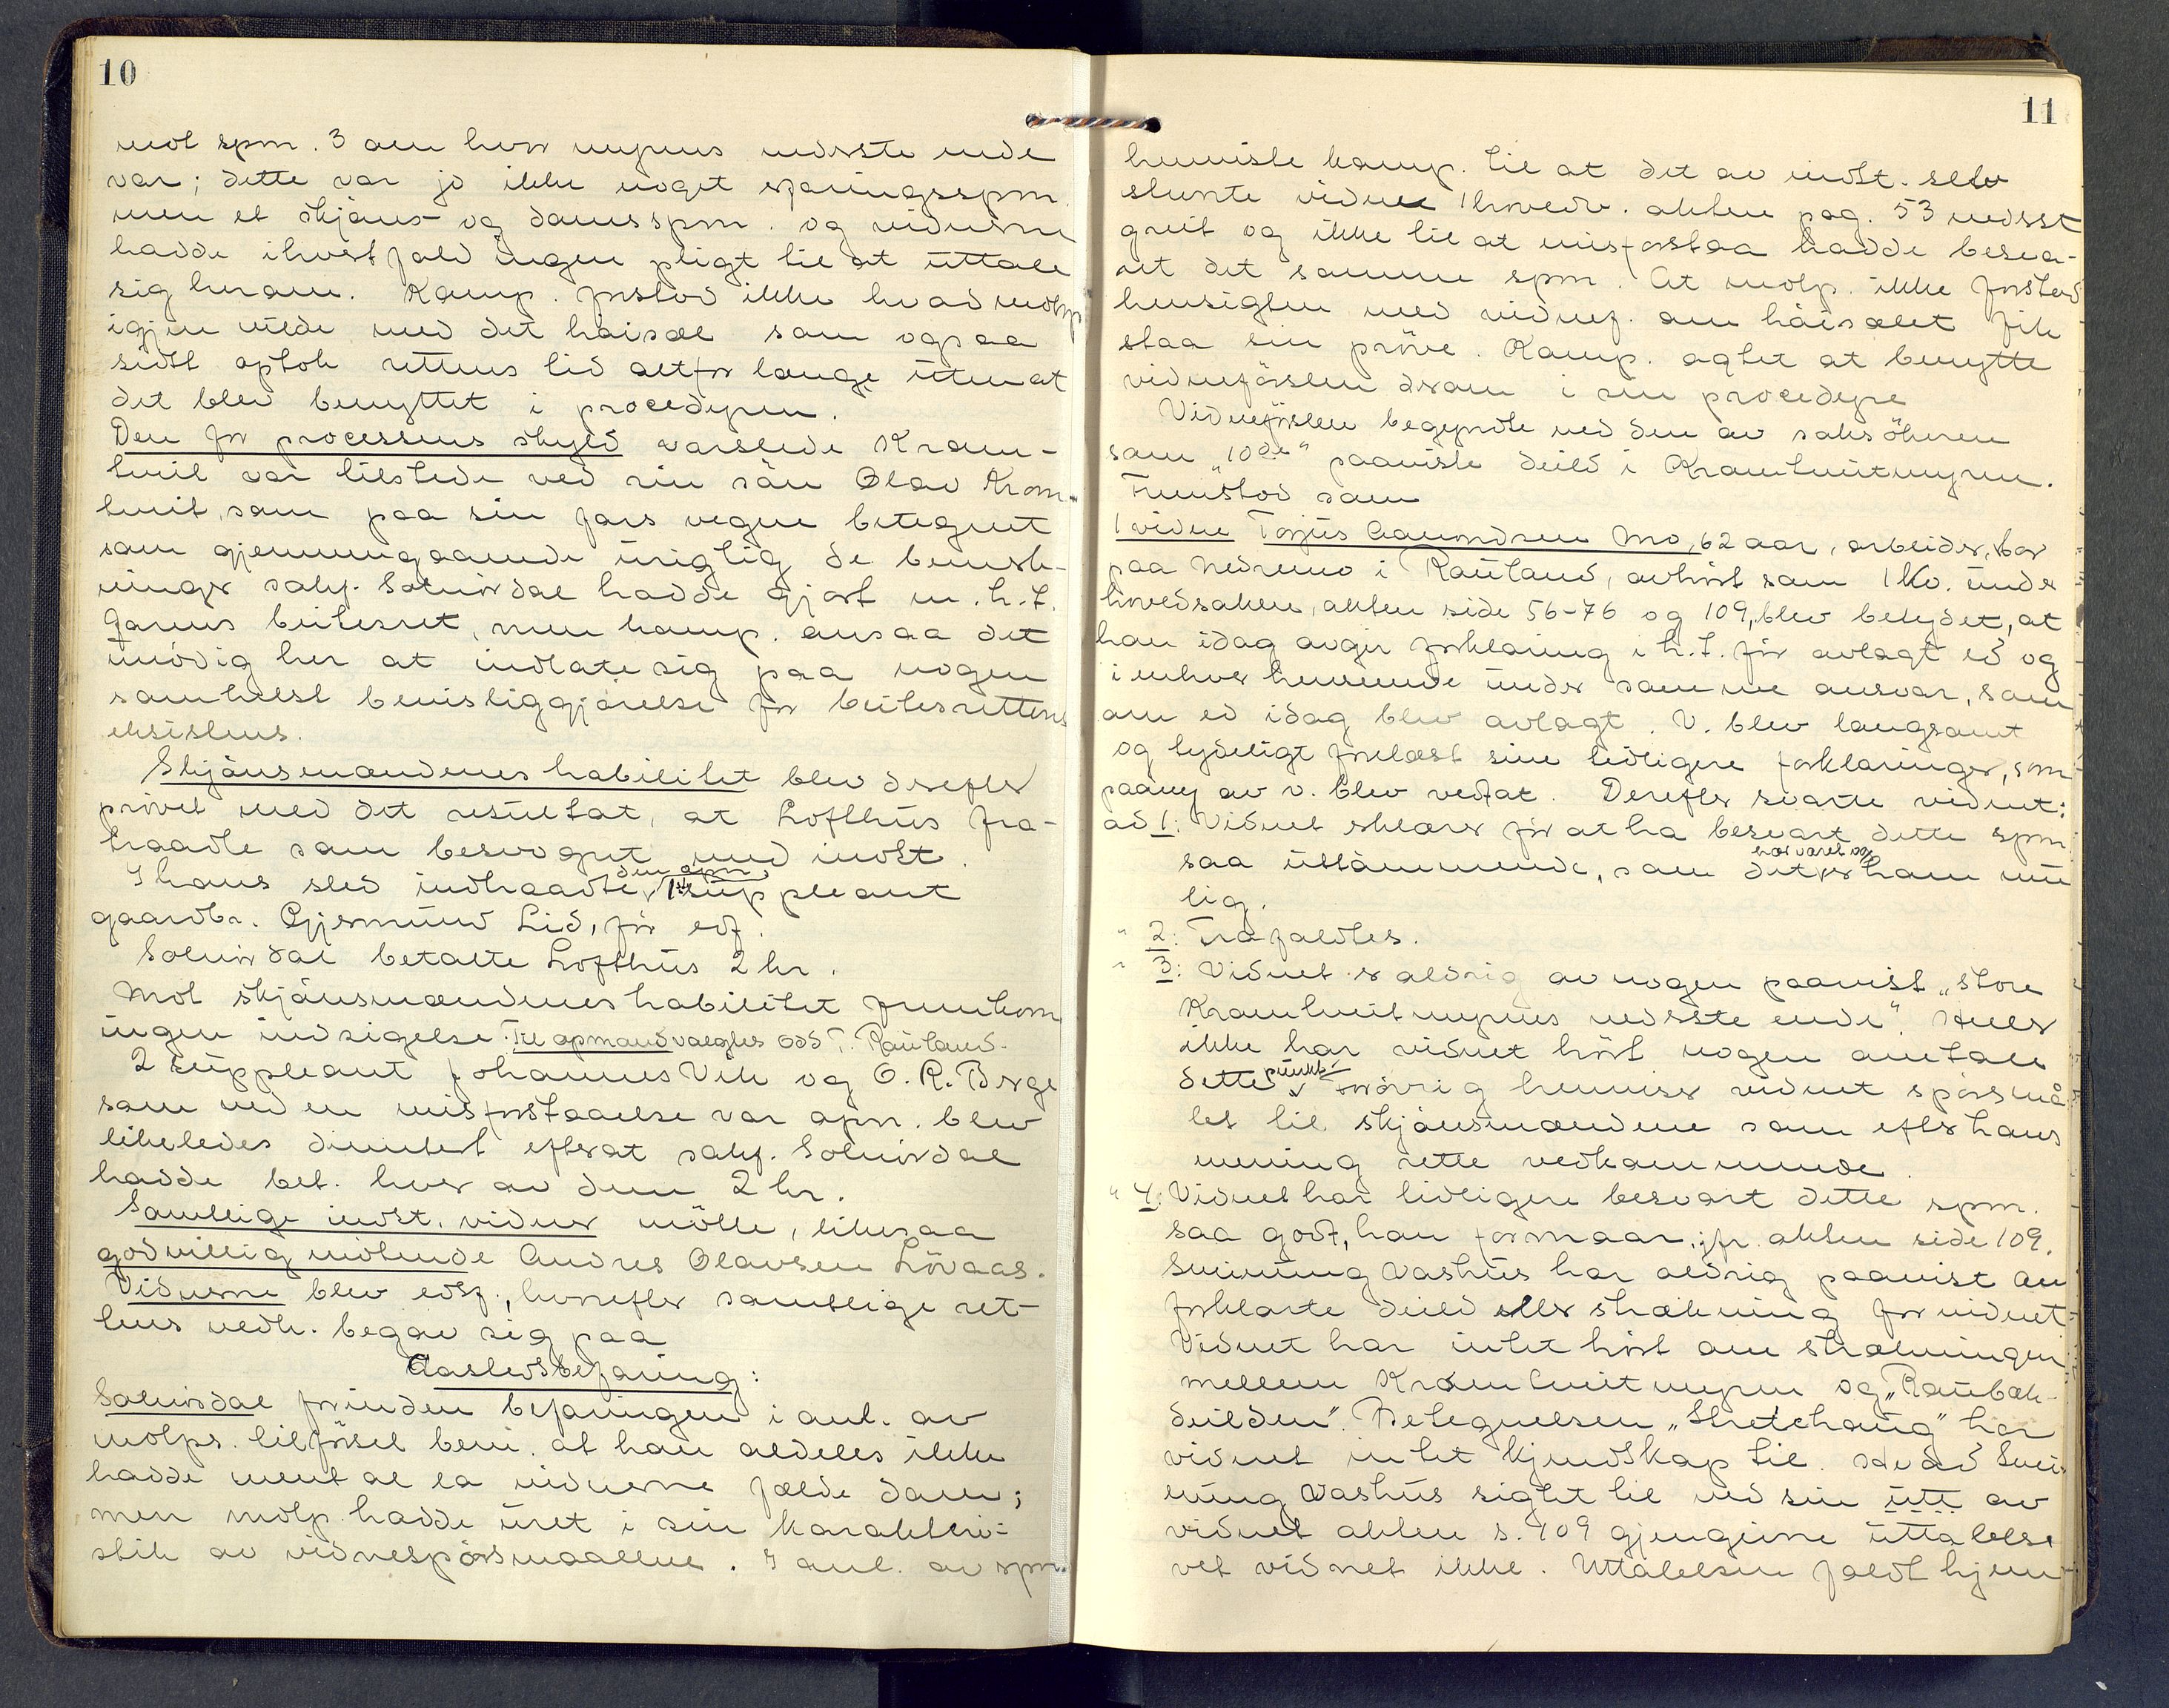 10
mot spm. 3 om hvor myrens nederste ende
var; dette var jo ikke noget erfaringsspm.
men et skjöns- og domsspm. og vidnerne
hadde ihvertfald ingen pligt til at uttale
sig herom. Komp. forstod ikke hvad motp.
igjen vilde med det höisæl som ogsaa
sidst optok rettens tid altfor længe uten at
det blev benyttet i proceduren.
Den for processens skyld varslede Krom-
tveit var tilstede ved sin sön Olav Krom-
tveit, som paa sin fars vegne betegnet
som gjennemgaaende urigtig de bemerk-
ninger sakf. Solvirdal hadde gjort m. h. t.
farens beitesret, men komp. ansaa det
unödig her at indlate sig paa nogen
somhelst bevisliggjörelse for beitesrettens
eksistens.
Skjönsmændenes habilitet blev derefter
prövet med det resultat, at Lofthus fra-
traadte som besvogret med indst.
I hans sted indtraadte den opn. 1ste suppleant
gaardbr. Gjermund Lid, för edf.
Solvirdal betalte Lofthus 2 kr.
Mot skjönsmændenes habilitet fremkom
ingen indsigelse. Til opmand valgtes Odd T. Rauland.
2 suppleant Johannes Vek og O. R. Berge
som ved en misforstaaelse var opn. blev
likeledes dimitert efterat sakf. Solvirdal
hadde bet. hver av dem 2 kr.
Samtlige indst. vidner mötte, likesaa
godvillig mötende Andres Olavsen Lövaas.
Vidnerne blev edsf., hvorefter samtlige ret-
tens vedk. begav sig paa
Aastedsbefaring:
Solvirdal forinden befaringen i anl. av
motps. tilförsel bem. at han aldeles ikke
hadde ment at la vidnerne fælde dom;
men motp. hadde uret i sin karakteri-
stik av vidnespörsmaalene. I anl. av spm.
11
henviste komp. til at det av indst. selv
stevnte vidne i hovedv. akten pag. 53 nederst
greit og ikke til at misforstaa hadde besva-
ret det samme spm. At motp. ikke forstod
hensigten med vidnef. om höisælet fik
staa sin pröve. Komp. agtet at benytte
vidneförselen derom i sin procedyre
Vidneförselen begyndte ved den av saksökeren
som "10de" paaviste deild i Kromtveitmyren.
Fremstod som
1 vidne Torjus Aamundsen Mo, 62 aar, arbeider, bor
paa Nedremo i Rauland, avhört som 1 Kv. under
hovedsaken, akten side 56-76 og 109, blev betydet, at
han idag avgir forklaring i h. t. för avlagt ed og
i enhver henseende under samme ansvar, som
om ed idag blev avlagt. V. blev langsomt
og tydeligt forelæst sine tidligere forklaringer, som
paany av v. blev vedtat. Derefter svarte vidnet:
ad 1: Vidnet erklærer för at ha besvart dette spm
saa uttömmende, som det har været og er ham mu
lig.
" 2: Frafaldtes.
" 3: Vidnet er aldrig av nogen paavist "store
Kromtveitmyrens nederste ende". Heller
ikke har vidnet hört nogen omtale
dette punkt. Forövrig henviser vidnet spörsmå-
let til skjönsmændene som efter hans
mening rette vedkommende.
" 4: Vidnet har tidligere besvart dette spm.
saa godt, han formaar, jfr. akten side 109.
Sveinung Vashus har aldrig paavist en
forklarte deild eller strækning for vidnet.
Vidnet har intet hört om strækningen
mellem Kromtveitmyren og "Raubæk-
deilden". Betegnelsen "Stretehaug" har
vidnet intet kjendskap til. Hvad Svei-
nung Vashus sigtet til ved sin utt av
vidnet akten s. 109 gjengivne uttalelse
vet vidnet ikke. Uttalelsen faldt hjem-